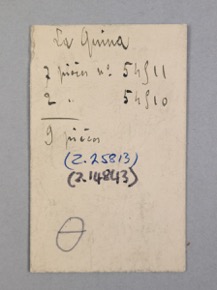 La Quina
7 pièces nº 54911
2 " 54910
9 pièces
(Z.25813)
(Z.14843)